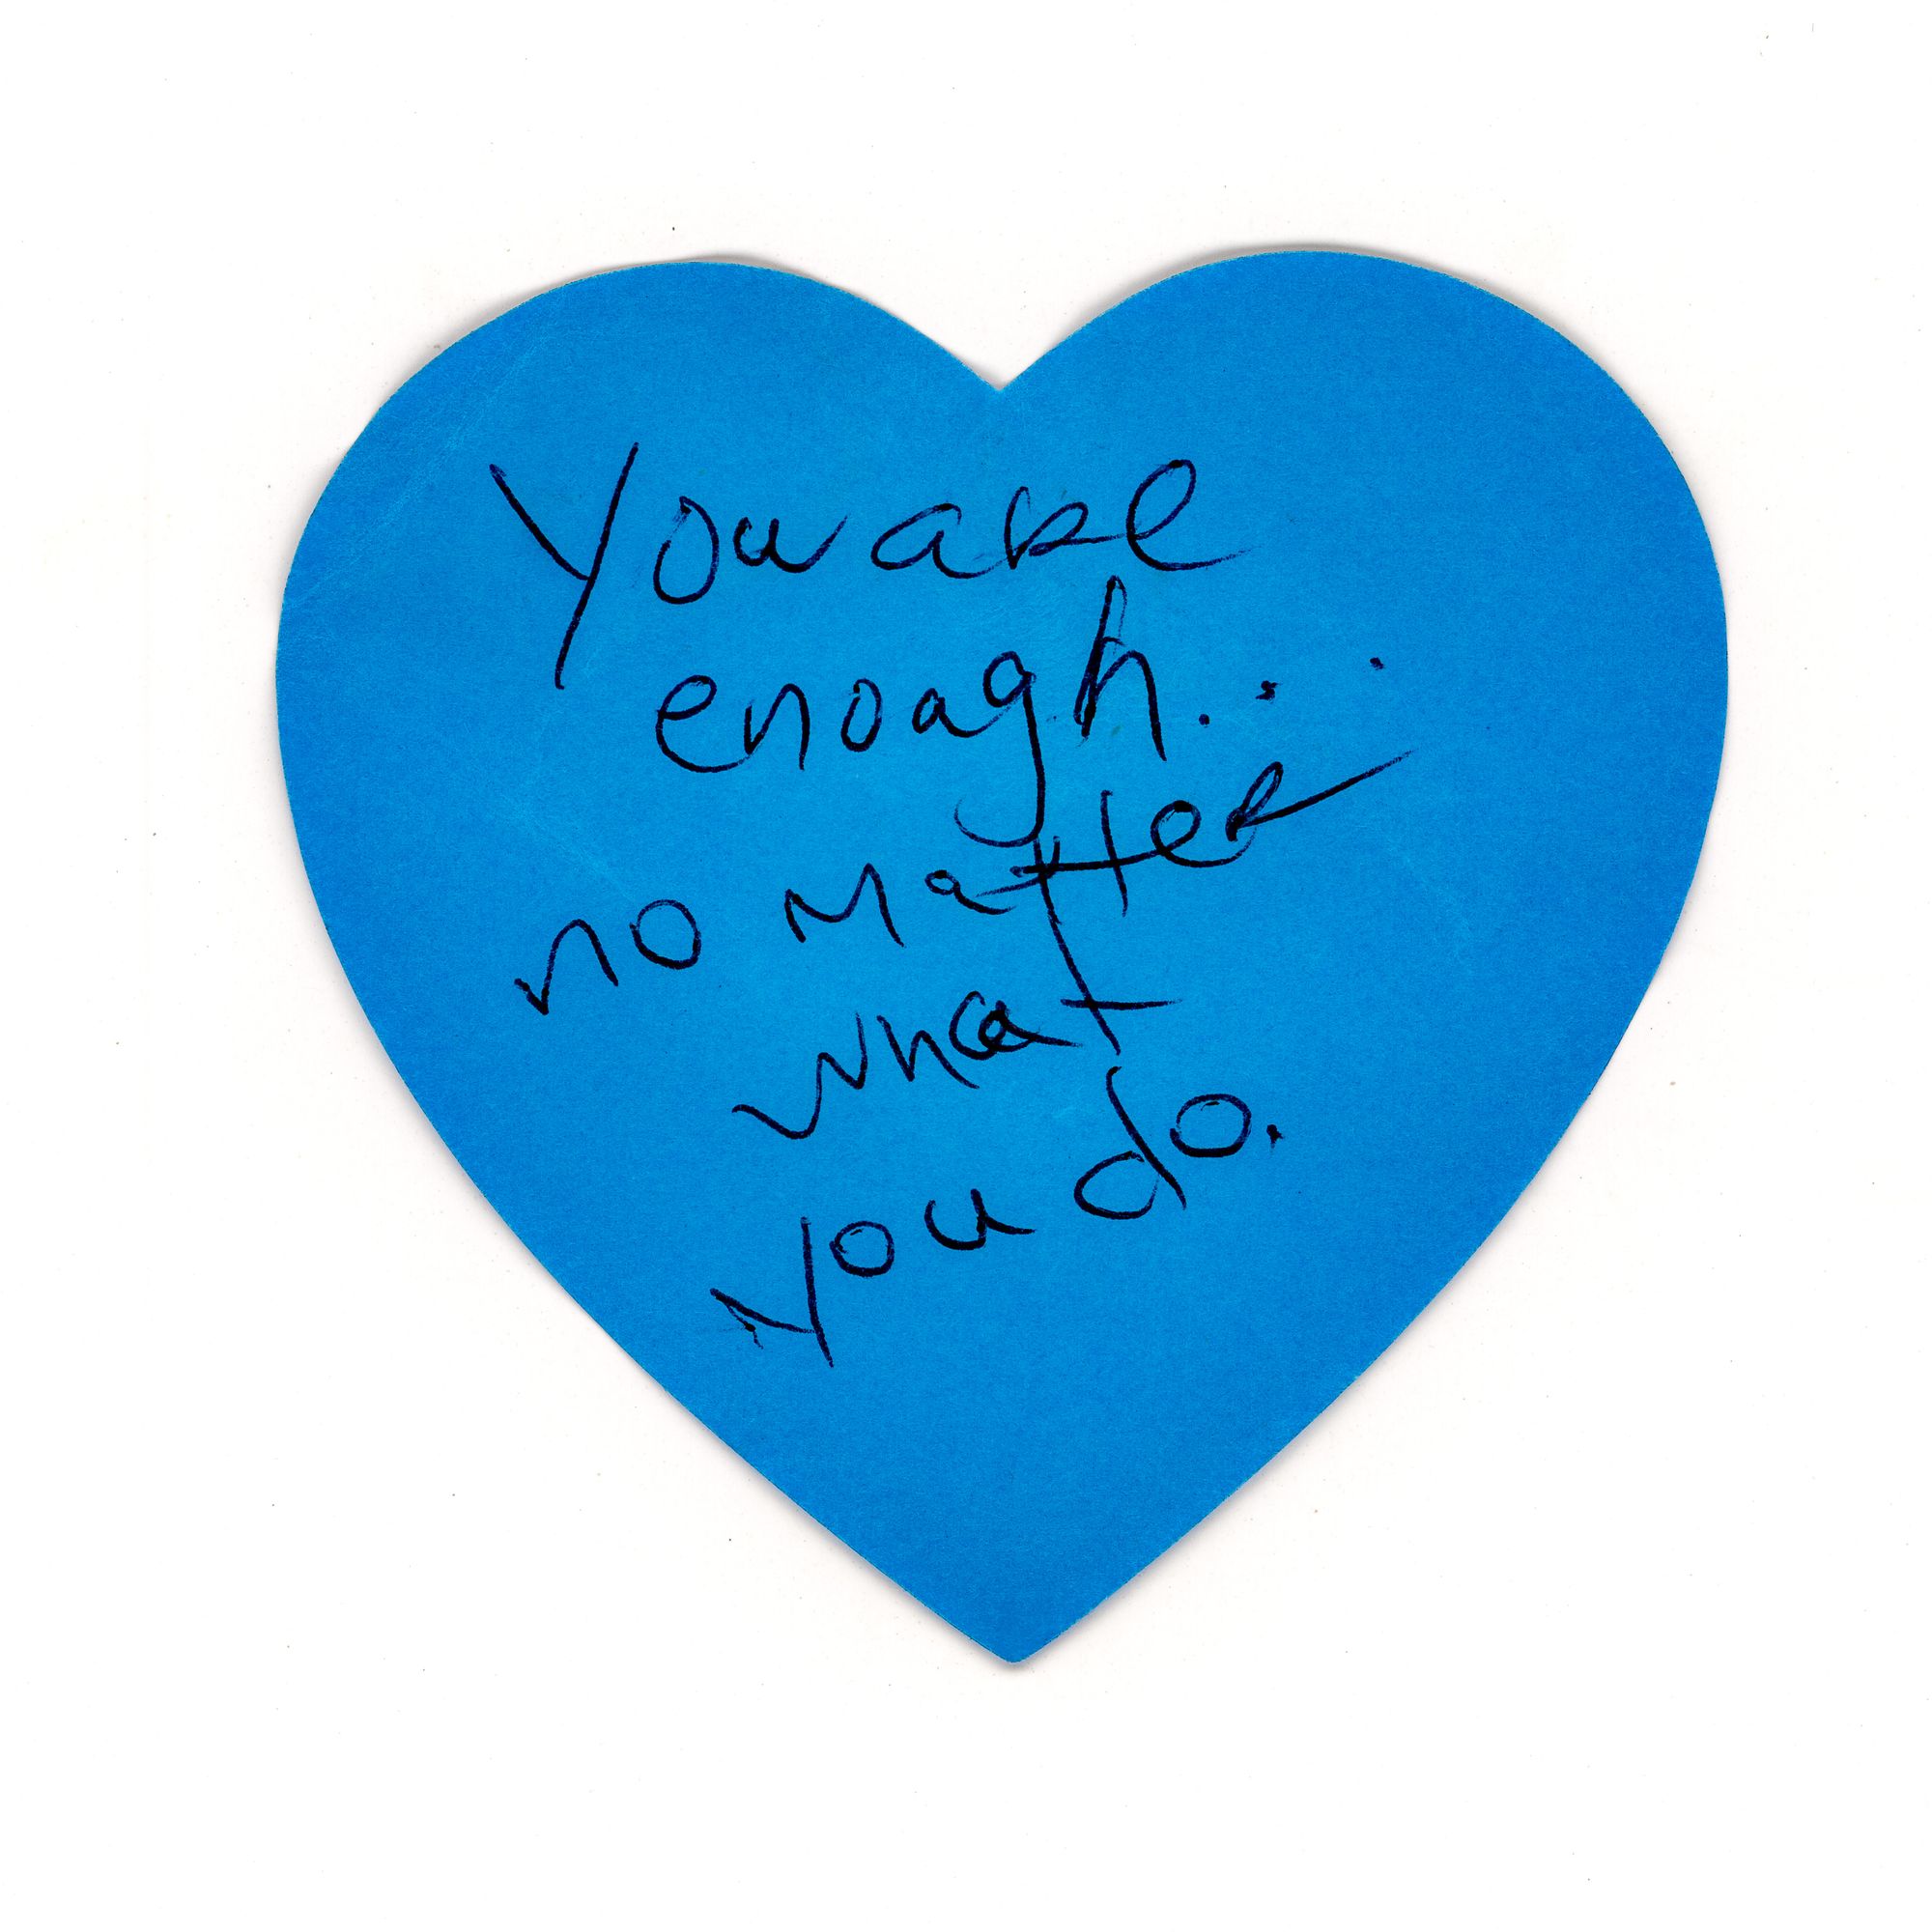 You are
enough...
no matter
what
you do.